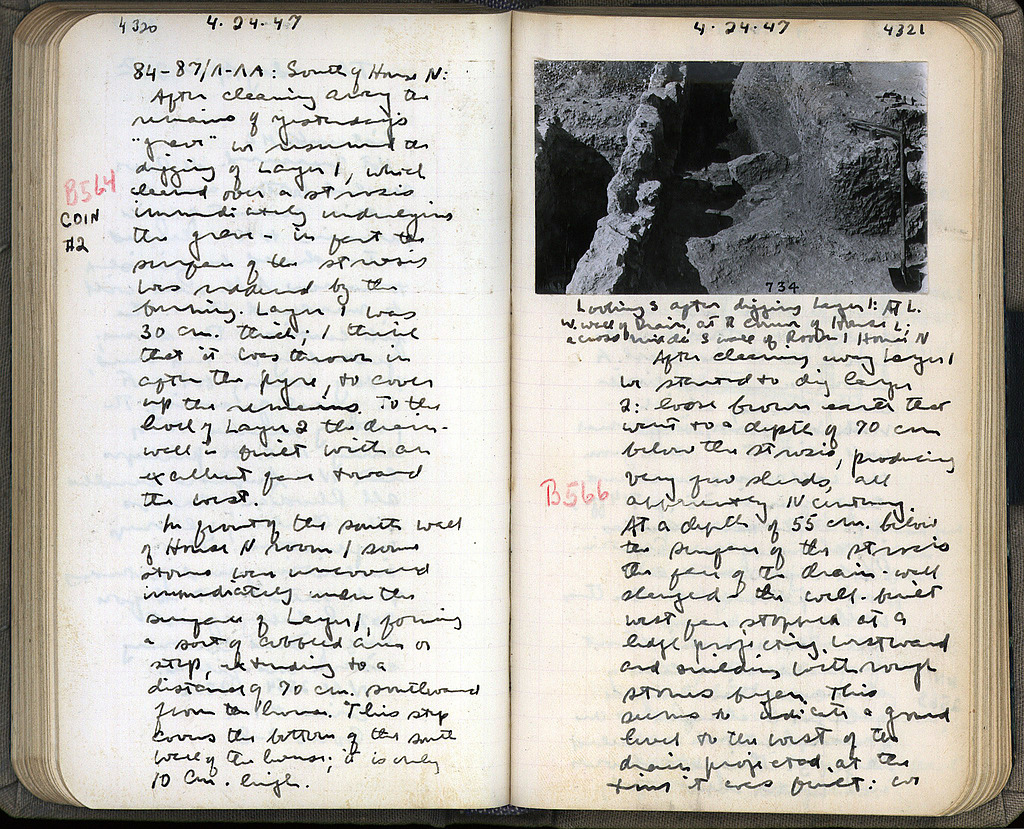 4320
4·24·47
84-87/Λ-ΛΑ: South of House N:
After cleaning away the
remains of yesterday's
"grave" we resumed the
digging of Layer 1, which
B564
COIN
#2
lay over a strosis
immediately underlying
the grave - in fact the
surface of the strosis
was reddened by the
burning. Layer 1 was
30 cm. thick; I think
that it was thrown in
after the pyre, to cover
up the remains. To the
level of Layer 2 the drain-
wall is built with an
excellent face toward
the west.
In front of the south wall
of House N room 1 some
stones were uncovered
immediately under the
surface of Layer 1, forming
a sort of cobbled area or
step, extending to a
distance of 70 cm. southward
from the house. This step
covers the bottom of the south
wall of the house; it is only
10 cm. high.
4·24·47
4321
734
Looking S after digging Layer 1: At L.
W. wall of drain, at R corner of House L;
across middle S wall of Room 1 House N
After cleaning away Layer 1
we started to dig layer
2: loose brown earth that
went to a depth of 70 cm
below the strosis, producing
very few sherds, all
B566
apparently IV century.
At a depth of 55 cm. below
the surface of the strosis
the face of the drain-wall
changed - the well-built
west face stopped at a
ledge projecting westward
and building with rough
stones began. This
seems to indicate a ground
level to the west of the
drain projected at the
time it was built: we